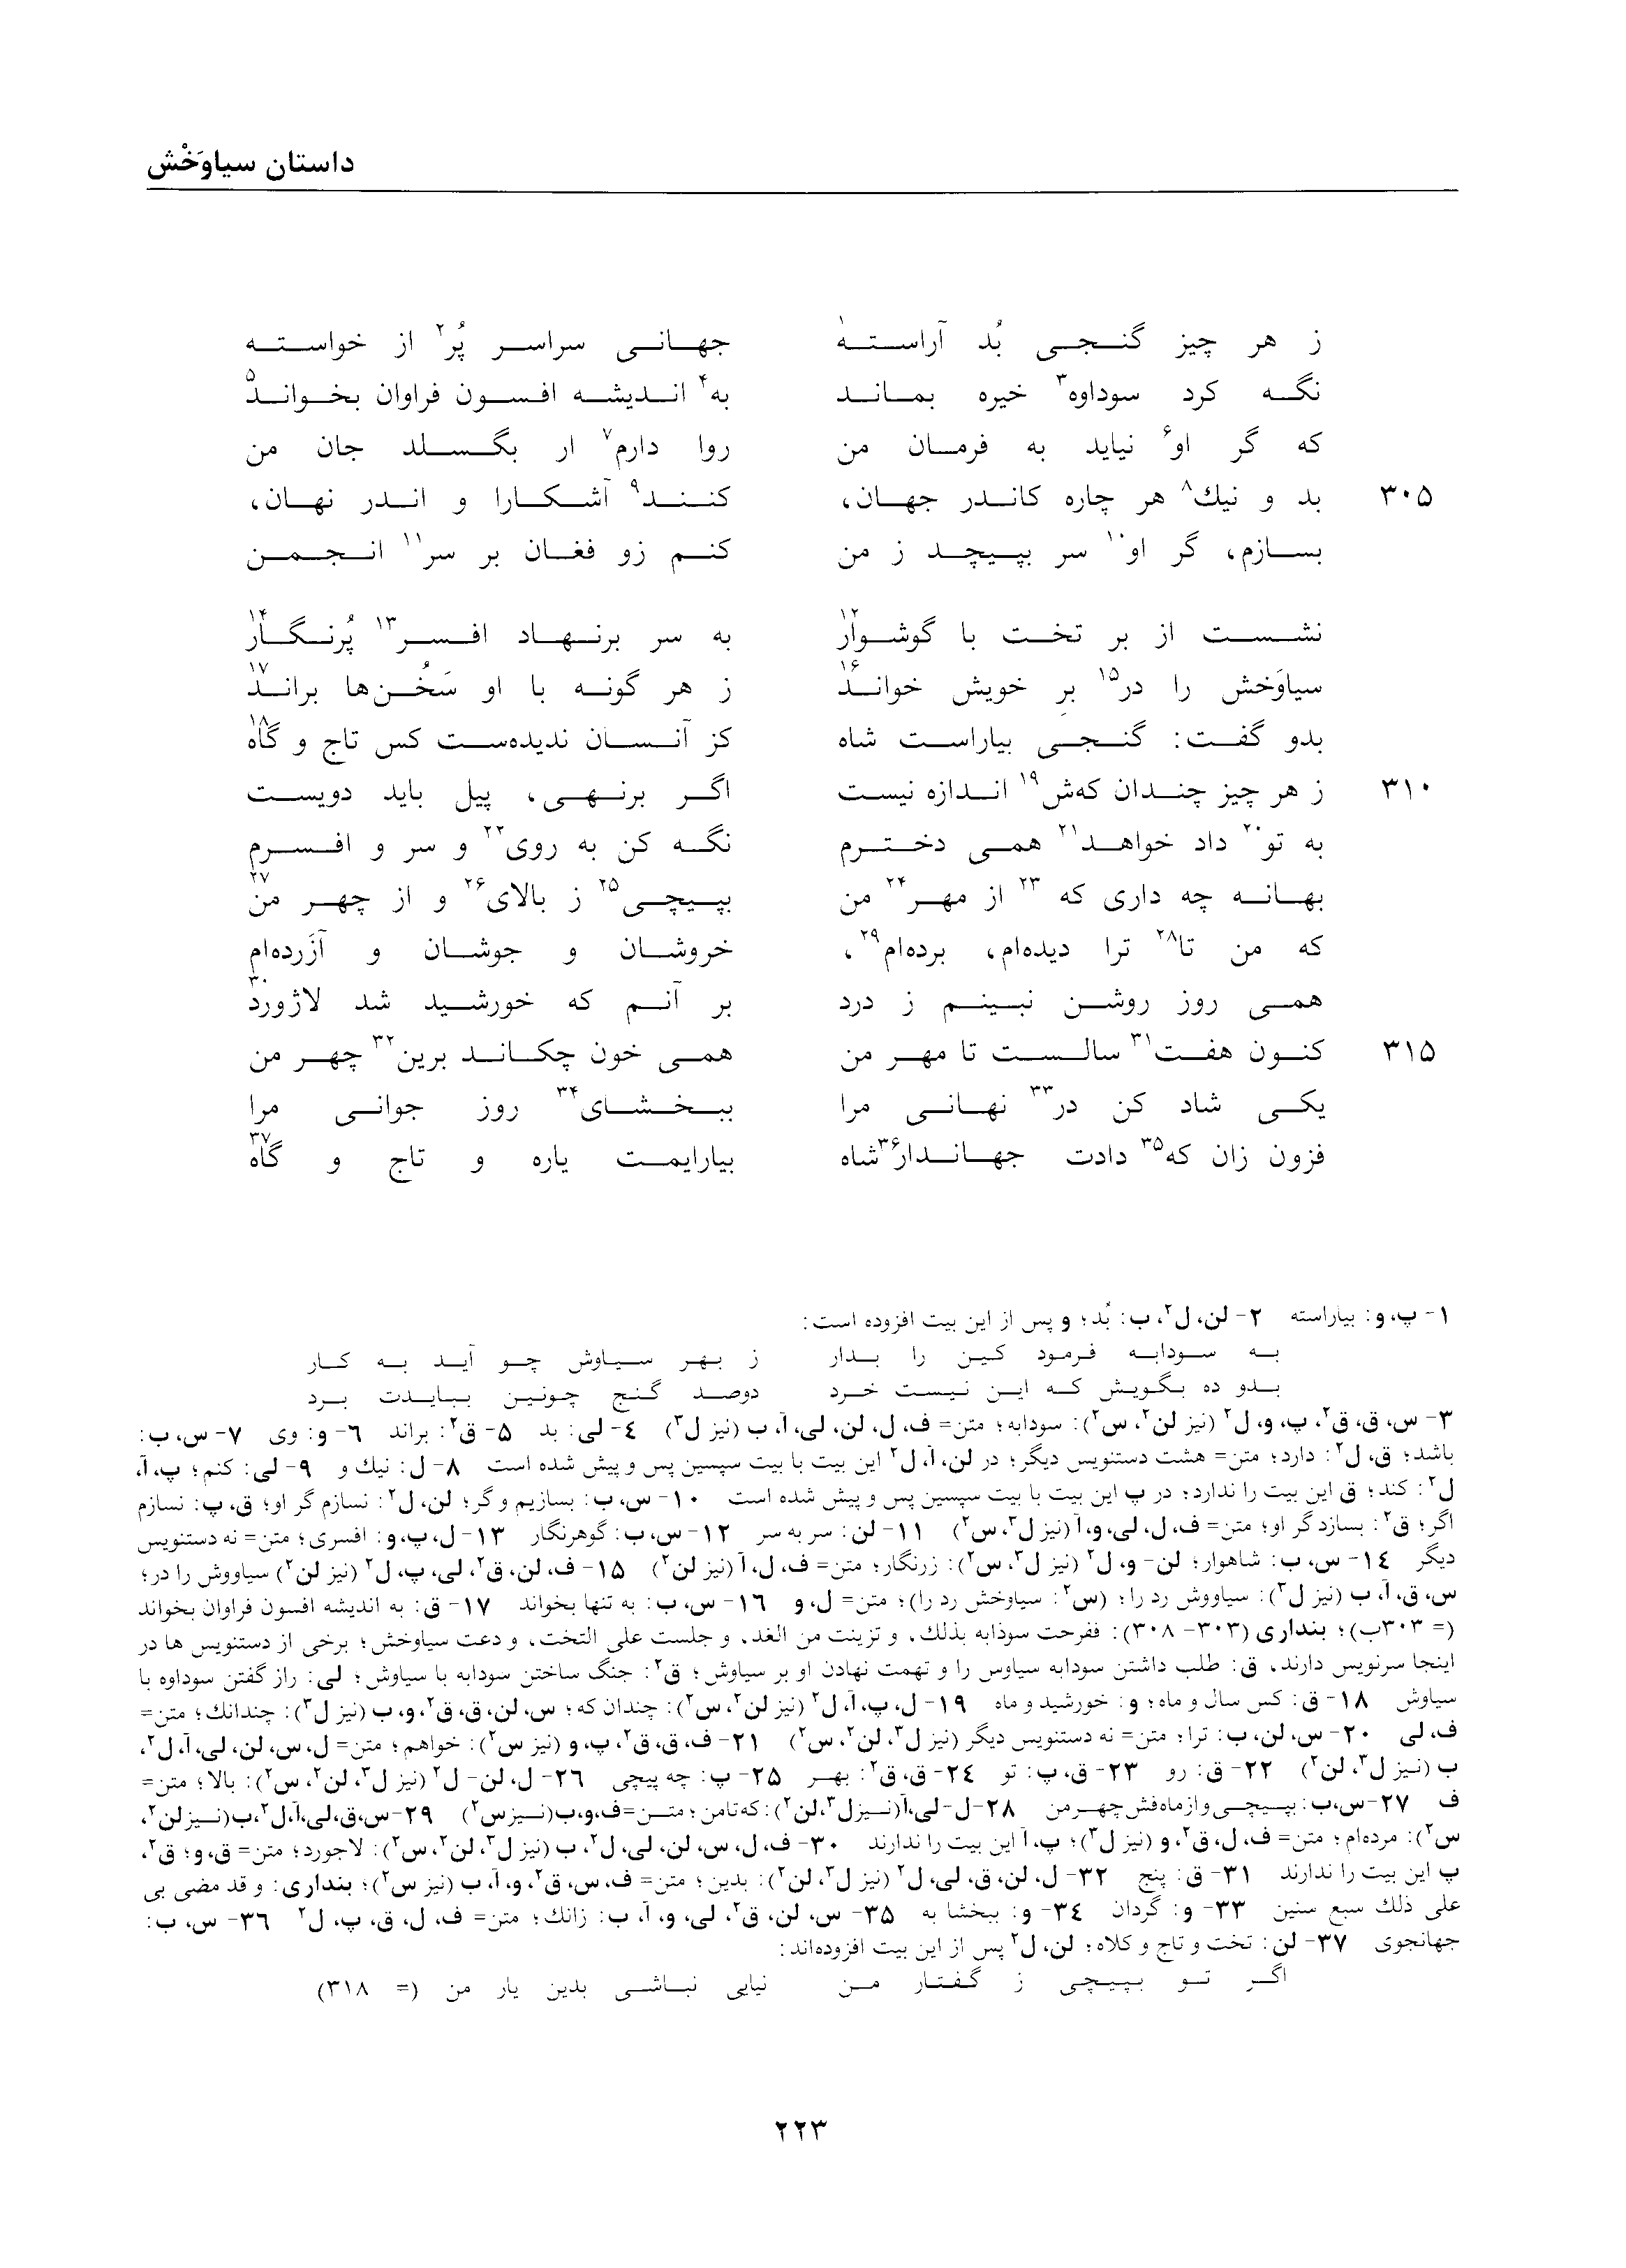 داستان سیاوَخْش
ز هر چیز گنجی بُد آراسته¹ جهانی سراسر پُر² از خواسته
نگه کرد سوداوه³ خیره بماند به⁴ اندیشه افسون فراوان بخواند⁵
که گر او⁶ نیاید به فرمان من روا دارم⁷ ار بگسلد جان من
۳۰۵ بد و نیك⁸ هر چاره کاندر جهان، کنند⁹ آشکارا و اندر نهان،
بسازم، گر او¹⁰ سر بپیچد ز من کنم زو فغان بر سر¹¹ انجمن
نشست از بر تخت با گوشوار¹² به سر برنهاد افسر¹³ پُرنگار¹⁴
سیاوَخش را در¹⁵ برِ خویش خواند¹⁶ ز هر گونه با او سَخُن‌ها براند¹⁷
بدو گفت: گنجی بیاراست شاه کز آنسان ندیده‌ست کس تاج و گاه¹⁸
۳۱۰ ز هر چیز چندان که‌ش¹⁹ اندازه نیست اگر برنهی، پیل باید دویست
به تو²⁰ داد خواهد²¹ همی دخترم نگه کن به روی²² و سر و افسرم
بهانه چه داری که²³ از مهر²⁴ من بپیچی²⁵ ز بالای²⁶ و از چهر من²⁷
که من تا²⁸ ترا دیده‌ام، برده‌ام²⁹، خروشان و جوشان و آزَرده‌ام
همی روز روشن نبینم ز درد بر آنم که خورشید شد لاژورد³⁰
۳۱۵ کنون هفت³¹ سالست تا مهر من همی خون چکاند برین³² چهر من
یکی شاد کن در³³ نهانی مرا ببخشای³⁴ روز جوانی مرا
فزون زان که³⁵ دادت جهاندار³⁶ شاه بیارایمت یاره و تاج و گاه³⁷
۱- پ، و: بیاراسته ۲- لن، ل²، ب: بُد؛ و پس از این بیت افزوده است:
به سودابه فرمود کین را بدار ز بهر سیاوش چو آید به کار
بدو ده بگویش که این نیست خرد دوصد گنج چونین ببایدت برد
۳- س، ق، ق²، پ، و، ل² (نیز لن²، س²): سودابه؛ متن= ف، ل، لن، لی، آ، ب (نیز ل³) ٤- لی: بد ۵- ق²: براند ٦- و: وی ۷- س، ب:
باشد؛ ق، ل²: دارد؛ متن= هشت دستنویس دیگر؛ در لن، آ، ل² این بیت با بیت سپسین پس و پیش شده است ۸- ل: نیك و ۹- لی: کنم؛ پ، آ،
ل²: کند؛ ق این بیت را ندارد؛ در پ این بیت با بیت سپسین پس و پیش شده است ۱۰- س، ب: بسازیم و گر؛ لن، ل²: نسازم گر او؛ ق، پ: نسازم
اگر؛ ق²: بسازد گر او؛ متن= ف، ل، لی، و، آ (نیز ل³، س²) ۱۱- لن: سر به سر ۱۲- س، ب: گوهرنگار ۱۳- ل، پ، و: افسری؛ متن= نه دستنویس
دیگر ۱٤- س، ب: شاهوار؛ لن- و، ل² (نیز ل³، س²): زرنگار؛ متن= ف، ل، آ (نیز لن²) ۱۵- ف، لن، ق²، لی، پ، ل² (نیز لن²) سیاووش را در؛
س، ق، آ، ب (نیز ل³): سیاووش رد را؛ (س²: سیاوخش رد را)؛ متن= ل، و ۱٦- س، ب: به تنها بخواند ۱۷- ق: به اندیشه افسون فراوان بخواند
(= ۳۰۳ب)؛ بنداری (۳۰۳- ۳۰۸): ففرحت سوذابه بذلك، و تزینت من الغد، و جلست علی التخت، و دعت سیاوخش؛ برخی از دستنویس ها در
اینجا سرنویس دارند، ق: طلب داشتن سودابه سیاوس را و تهمت نهادن او بر سیاوش؛ ق²: جنگ ساختن سودابه با سیاوش؛ لی: راز گفتن سوداوه با
سیاوش ۱۸- ق: کس سال و ماه؛ و: خورشید و ماه ۱۹- ل، پ، آ، ل² (نیز لن²، س²): چندان که؛ س، لن، ق، ق²، و، ب (نیز ل³): چندانك؛ متن=
ف، لی ۲۰- س، لن، ب: ترا؛ متن= نه دستنویس دیگر (نیز ل³، لن²، س²) ۲۱- ف، ق، ق²، پ، و (نیز س²): خواهم؛ متن= ل، س، لن، لی، آ، ل²،
ب (نیز ل³، لن²) ۲۲- ق: رو ۲۳- ق، پ: تو ۲٤- ق، ق²: بهر ۲۵- پ: چه پیچی ۲٦- ل، لن- ل² (نیز ل³، لن²، س²): بالا؛ متن=
ف ۲۷- س، ب: بپیچی و از ماه فش چهر من ۲۸- ل- لی، آ (نیز ل³، لن²): که تا من؛ متن= ف، و، ب (نیز س²) ۲۹- س، ق، لی، آ، ل²، ب (نیز لن²،
س²): مرده‌ام؛ متن= ف، ل، ق²، و (نیز ل³)؛ پ، آ این بیت را ندارند ۳۰- ف، ل، س، لن، لی، ل²، ب (نیز ل³، لن²، س²): لاجورد؛ متن= ق، و؛ ق²،
پ این بیت را ندارند ۳۱- ق: پنج ۳۲- ل، لن، ق، لی، ل² (نیز ل³، لن²): بدین؛ متن= ف، س، ق²، و، آ، ب (نیز س²)؛ بنداری: و قد مضی بی
علی ذلك سبع سنین ۳۳- و: گردان ۳٤- و: ببخشا به ۳۵- س، لن، ق²، لی، و، آ، ب: زانك؛ متن= ف، ل، ق، پ، ل² ۳٦- س، ب:
جهانجوی ۳۷- لن: تخت و تاج و کلاه؛ لن، ل² پس از این بیت افزوده‌اند:
اگر تو بپیچی ز گفتار من نیایی نباشی بدین یار من (= ۳۱۸)
۲۲۳